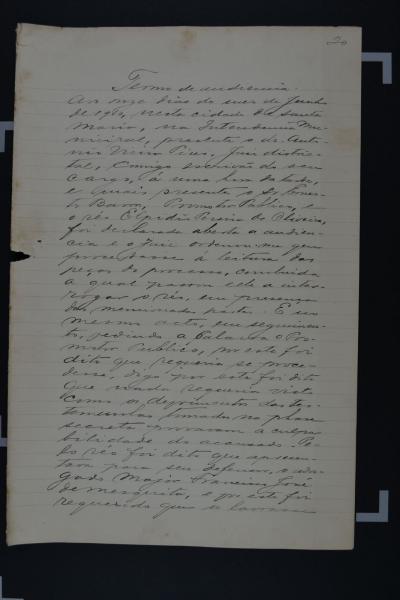 20
Termo de audiencia.
Aos onze dias do mez de Junho
de 19, nesta cidade de Santa
Maria, na Intendencia Mu-
nicipal, presente o dr. Anto-
nio Pires, Juiz distric-
tal, Comigo escrivão do seu
cargo, á uma hora da tarde,
e mais presente o Sr. Ernes-
to Barros, Promotor Publico, e
o réo Elpidio Pereira de Oliveira,
foi declarada aberta a audien-
cia e o Juiz ordenou-me que
procedesse á leitura das
peças do processo, concluida
a qual passou elle a inter-
rogar o réo, em presença
das mencionadas partes. E no
mesmo acto, em seguimen-
to, pedindo a palavra o Pro-
motor Publico, por este foi
dito que requeria se proce-
desse, digo por este foi dito
que nada requeria visto
como os depoimentos das tes-
temunhas tomados na phase
secreta provavam a culpa-
bilidade do accusado. Pe-
lo réo foi dito que apresen-
tava para seu defensor, o advo-
gado Major Francisco José
de Mesquita, e por este foi
requerido que se lavrasse